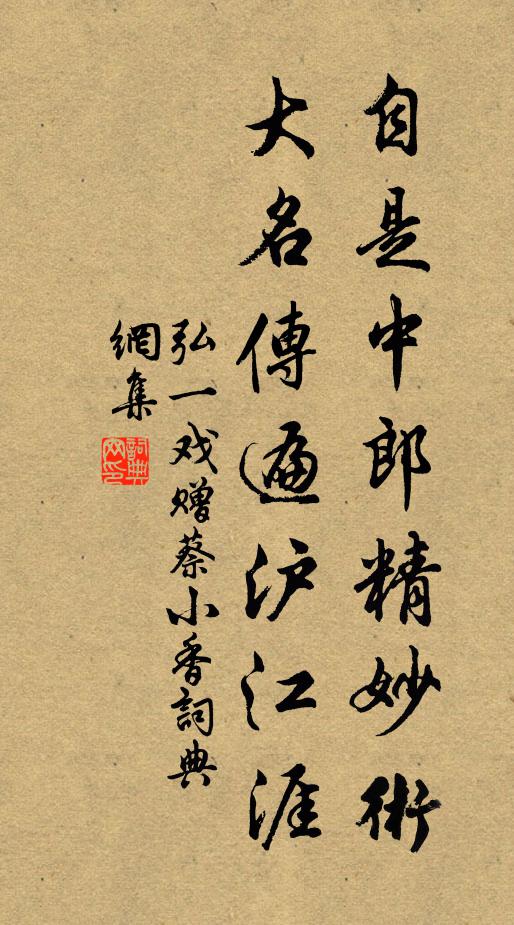 自是中郎精妙術
大名傳遍沪江涯
弘一戏赠蔡小香詞典
網集
詞典网印